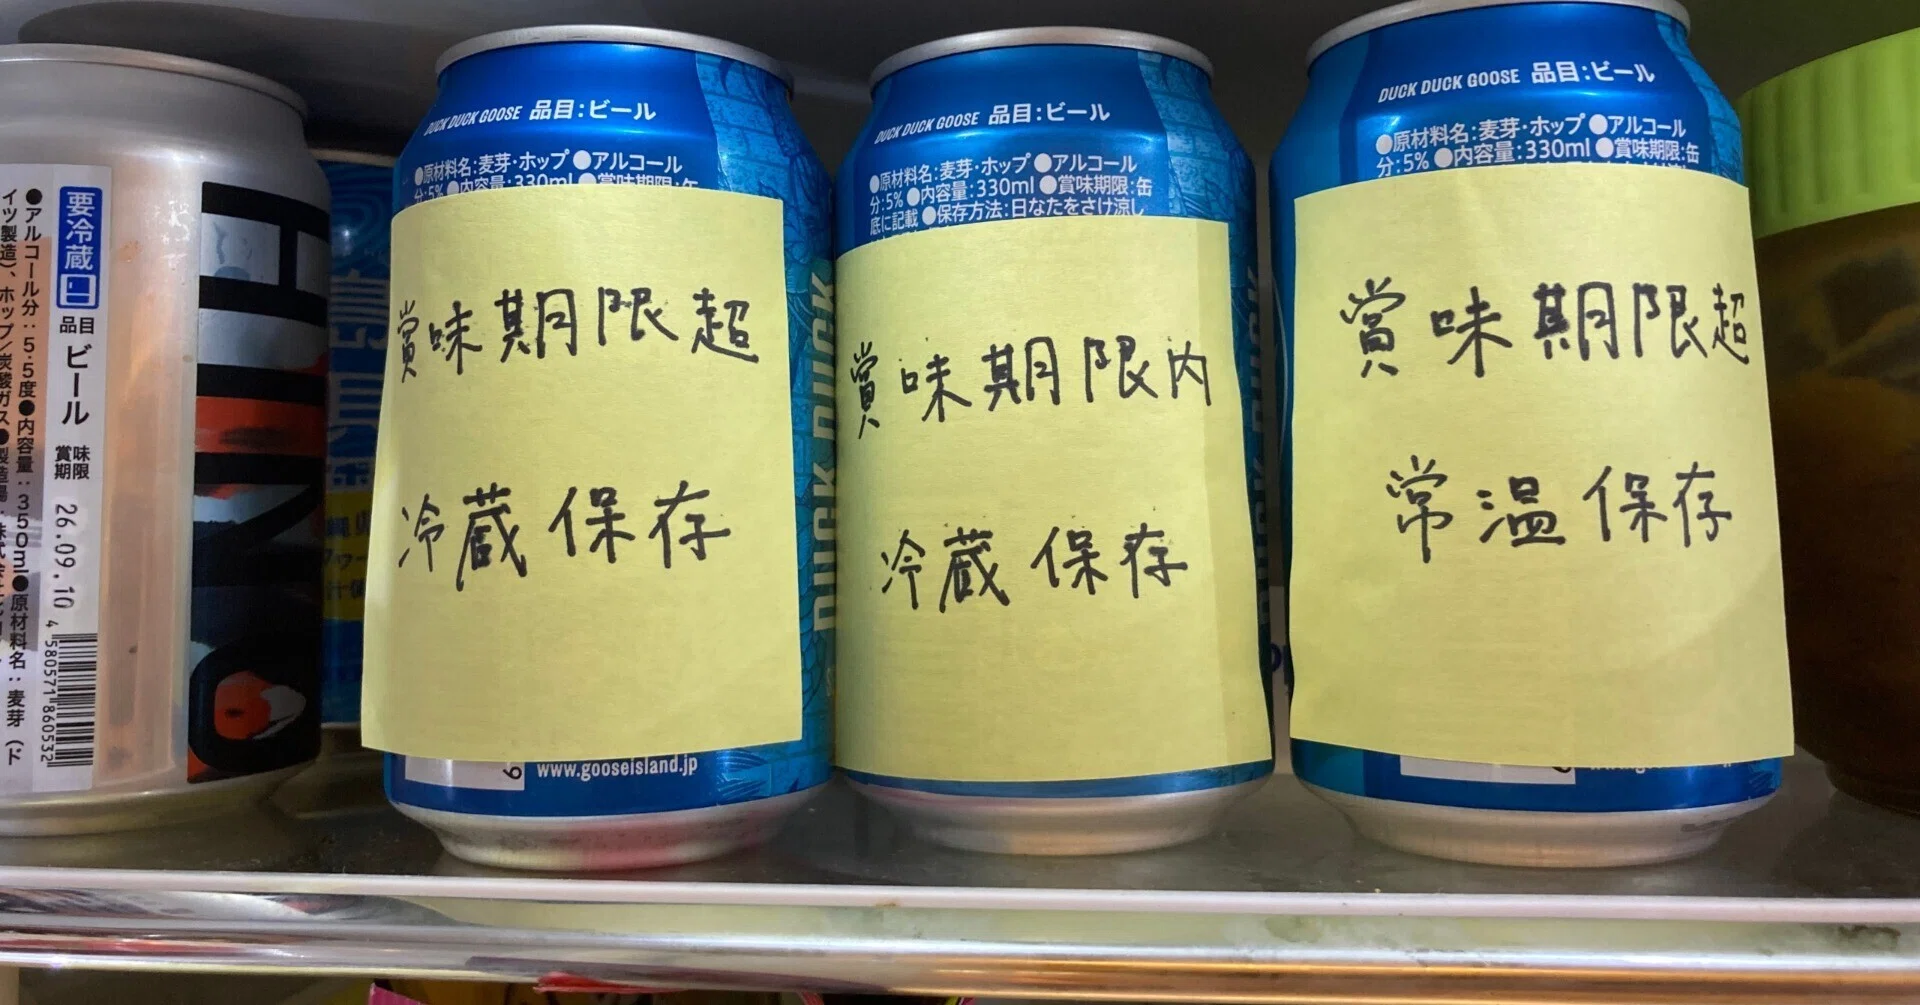 要冷蔵
品目 ビール
賞味期限 26.09.10
●アルコール分:5.5度●内容量:350ml●原材料名:麦芽(ド
イツ製造)、ホップ/炭酸ガス
4 580571 860532
DUCK DUCK GOOSE 品目:ビール
●原材料名:麦芽・ホップ ●アルコール
分:5% ●内容量:330ml ●賞味期限:缶
賞味期限超
冷蔵保存
DUCK DUCK
9
www.gooseisland.jp
DUCK DUCK GOOSE 品目:ビール
●原材料名:麦芽・ホップ ●アルコール
分:5% ●内容量:330ml ●賞味期限:缶
底に記載 ●保存方法:日なたをさけ涼し
賞味期限内
冷蔵保存
DUCK DUCK GOOSE 品目:ビール
●原材料名:麦芽・ホップ ●アルコール
分:5% ●内容量:330ml ●賞味期限:缶
賞味期限超
常温保存